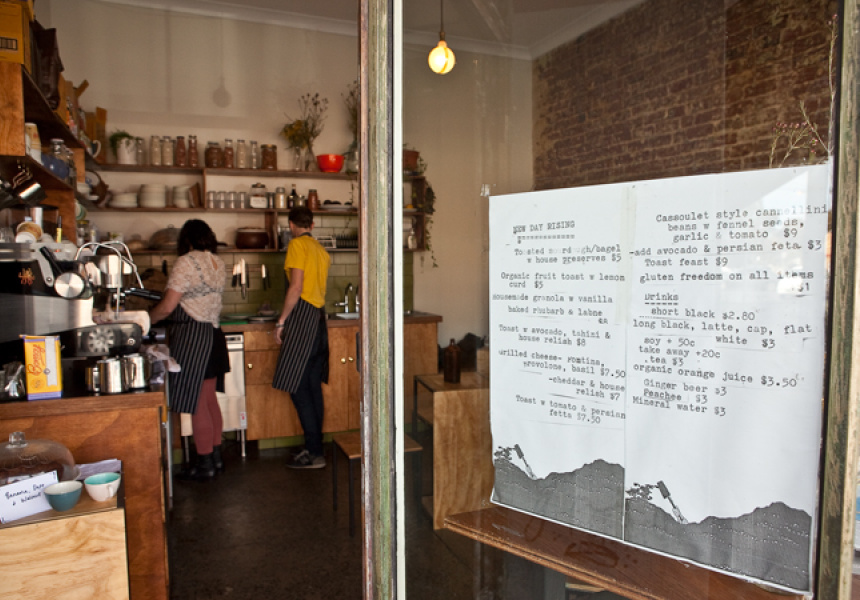 NEW DAY RISING
Toasted sourdough/bagel
w house preserves $5
Organic fruit toast w lemon
curd $5
housemade granola w vanilla
baked rhubarb & labne
Toast w avocado, tahini &
house relish $8
Grilled cheese- Fontina,
provolone, basil $7.50
-cheddar & house
relish $7
Toast w tomato & persian
fetta $7.50
Cassoulet style cannellini
beans w fennel seeds,
garlic & tomato $9
-add avocado & persian feta $3
Toast feast $9
gluten freedom on all items
$1
Drinks
short black $2.80
long black, latte, cap, flat
white $3
soy + 50c
take away +20c
.tea $3
organic orange juice $3.50
Ginger beer $3
Peachee $3
Mineral water $3
Banana, Date
& Walnut